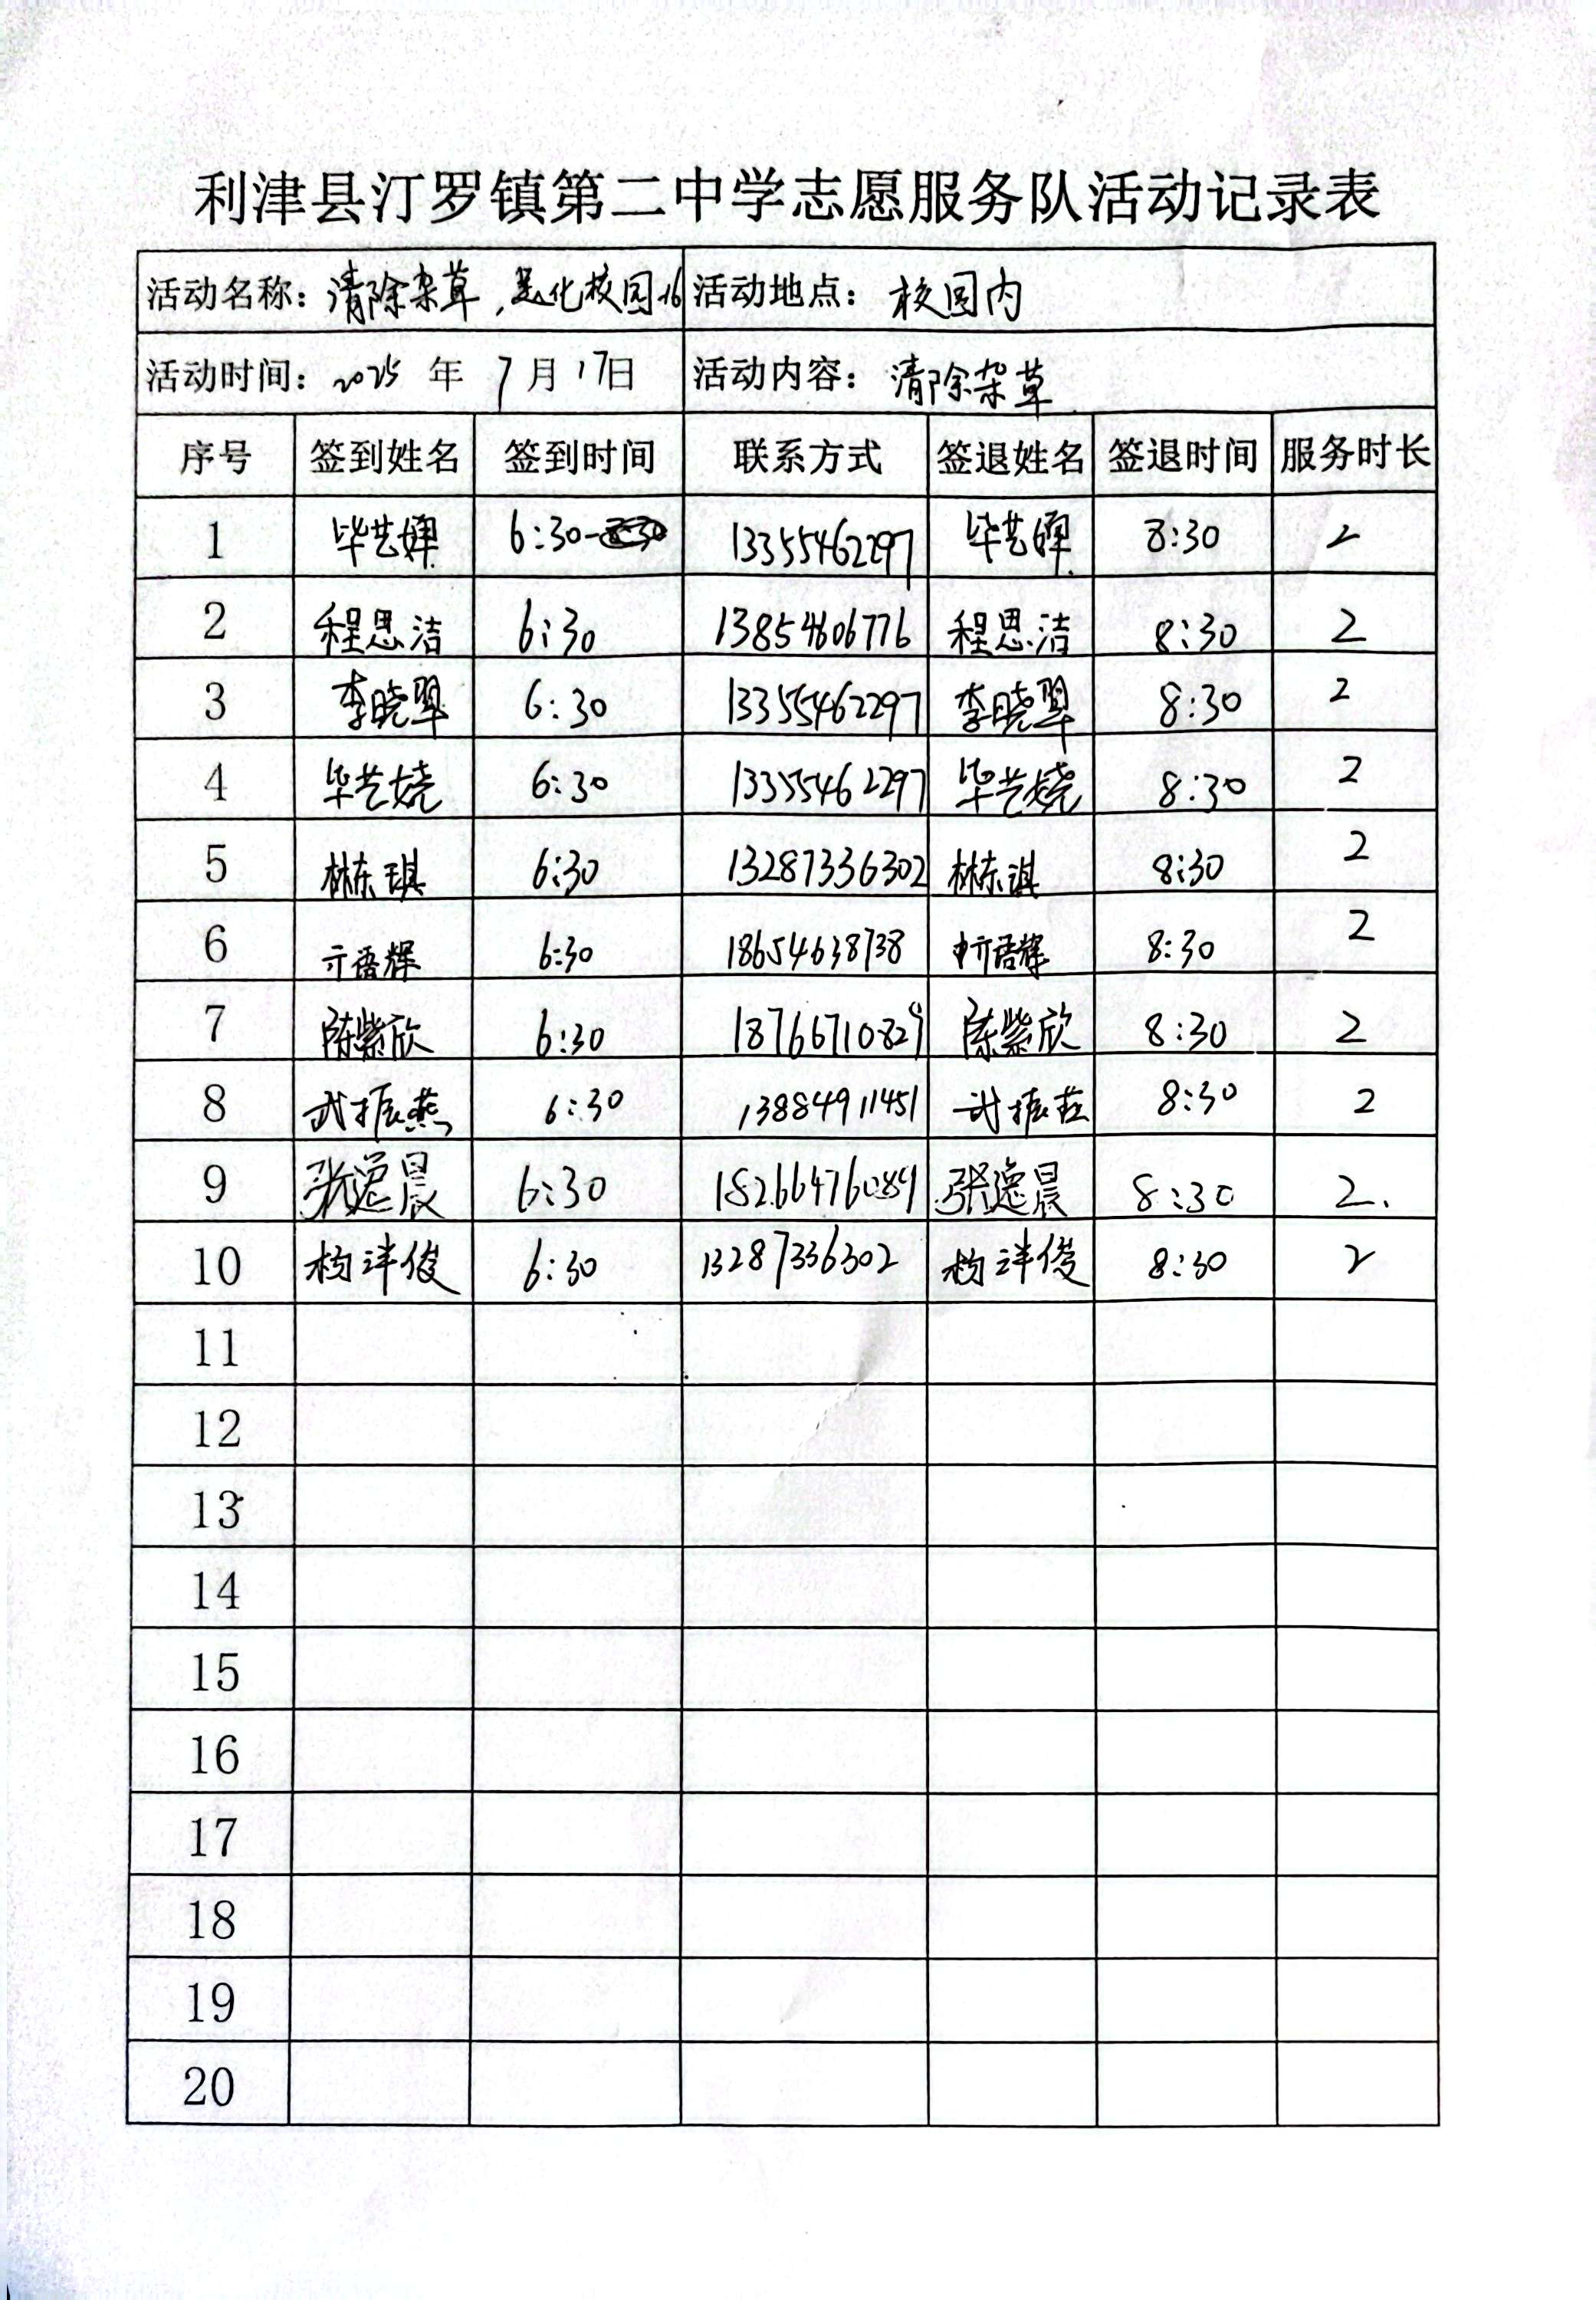 利津县汀罗镇第二中学志愿服务队活动记录表
活动名称：清除杂草，美化校园 活动地点：校园内
活动时间：2025年7月17日 活动内容：清除杂草
序号 签到姓名 签到时间 联系方式 签退姓名 签退时间 服务时长
1 毕艺婵 6:30- 13355462297 毕艺婵 8:30 2
2 程思洁 6:30 13854606776 程思洁 8:30 2
3 李晓翠 6:30 13355462297 李晓翠 8:30 2
4 毕艺娆 6:30 13355462297 毕艺娆 8:30 2
5 林东琪 6:30 13287336302 林东琪 8:30 2
6 语辉 6:30 18654638738 语辉 8:30 2
7 陈紫欣 6:30 18766710829 陈紫欣 8:30 2
8 武振燕 6:30 13884911451 武振 8:30 2
9 张逸晨 6:30 18266476089 张逸晨 8:30 2.
10 杨洋俊 6:30 13287336302 杨洋俊 8:30 2
11
12
13
14
15
16
17
18
19
20